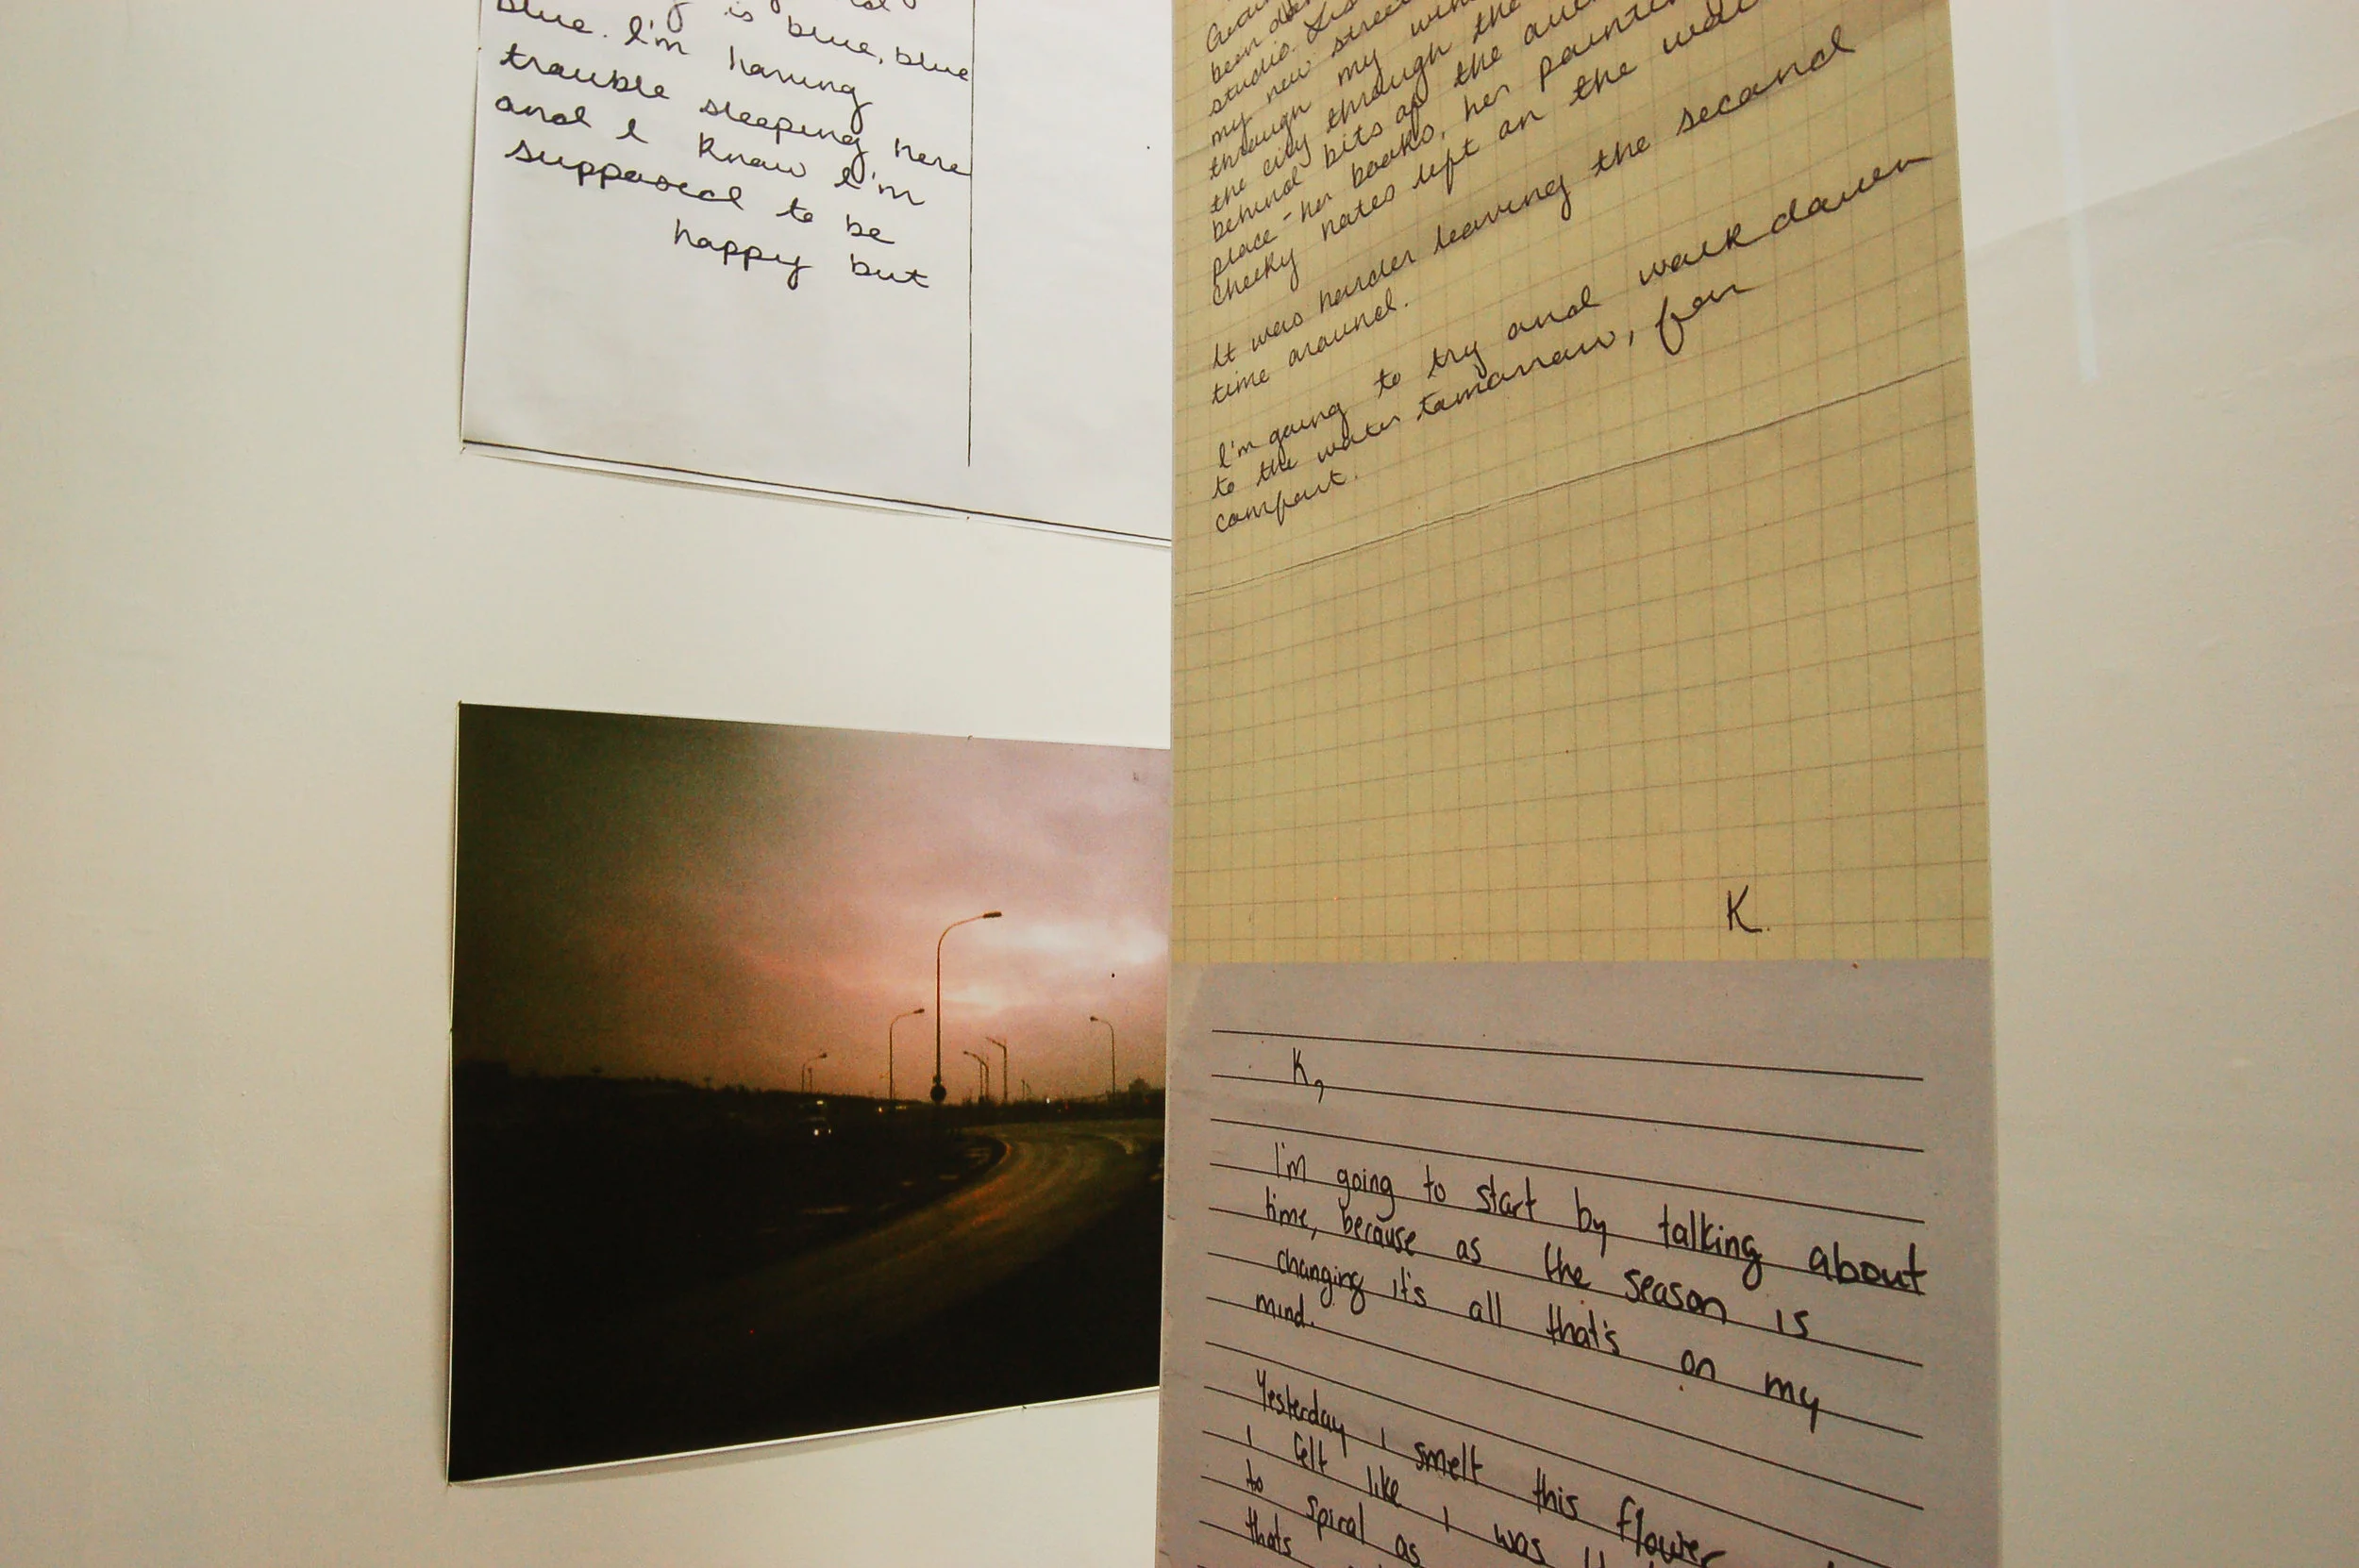 is blue, blue
blue. I'm having
trouble sleeping here
and I know I'm
supposed to be
happy but
been
studio.
my new street
through my
the city through the
behind bits of the
place - her books, her
cheeky notes left on the
It was harder leaving the second
time around.
I'm going to try and walk down
to the water tomorrow, for
comfort.
K.
K,
I'm going to start by talking about
time, because as the season is
changing it's all that's on my
mind.
Yesterday I smelt this flower
I felt like I was
to spiral as
thats